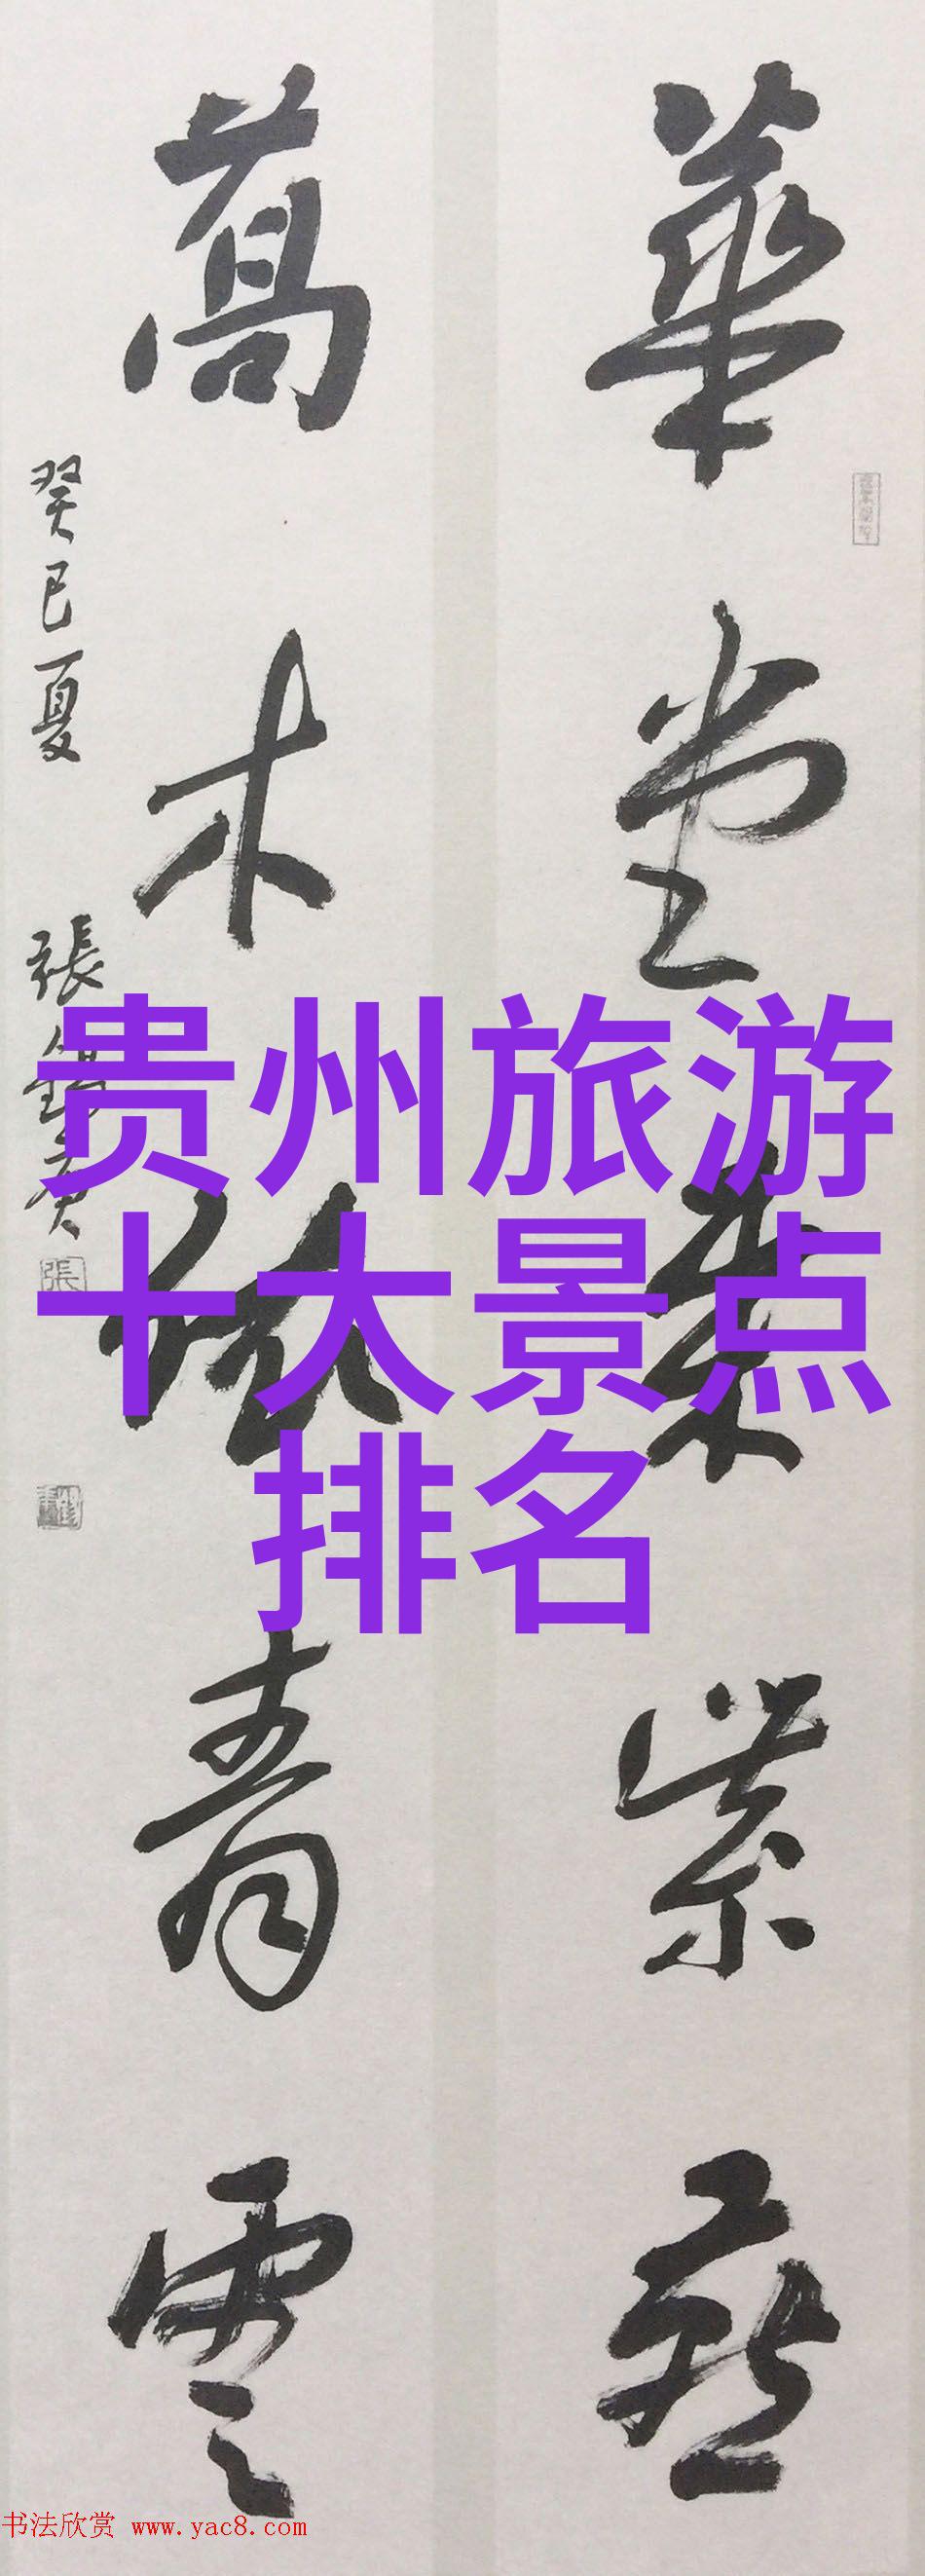 華堂紫
萬木青雲
癸巳夏 張錫庚
贵州旅游
十大景点
排名
书法欣赏 www.yac8.com